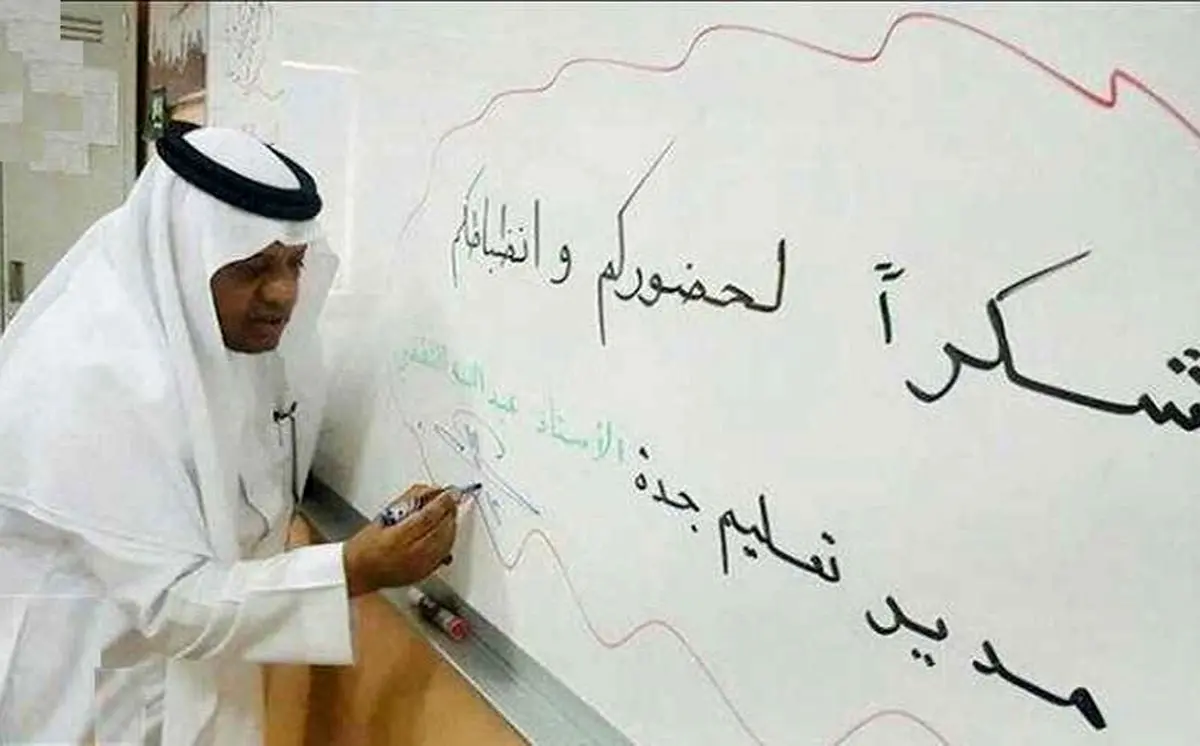 شكراً لحضوركم و انضباطكم
مديد تعليم جدة
الأستاذ عبدالله الثقفي